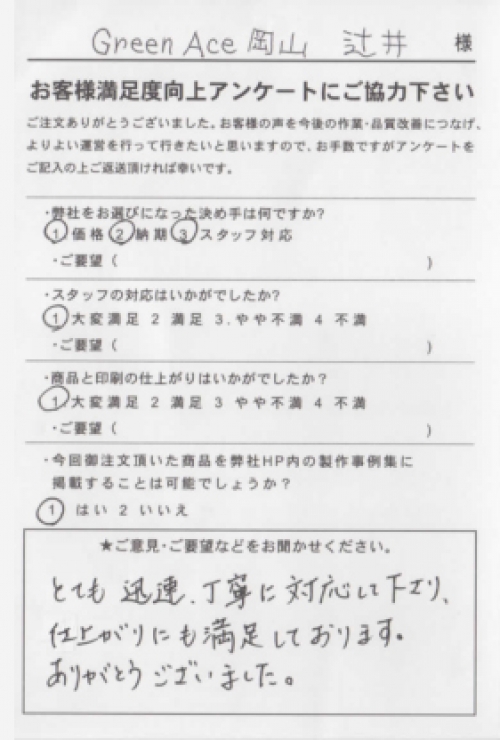 Green Ace 岡山 辻井 様
お客様満足度向上アンケートにご協力下さい
ご注文ありがとうございました。お客様の声を今後の作業・品質改善につなげ、
よりよい運営を行って行きたいと思いますので、お手数ですがアンケートを
ご記入の上ご返送頂ければ幸いです。
・弊社をお選びになった決め手は何ですか?
1 価格 2 納期 3 スタッフ対応
・ご要望( )
・スタッフの対応はいかがでしたか?
1 大変満足 2 満足 3.やや不満 4 不満
・ご要望( )
・商品と印刷の仕上がりはいかがでしたか?
1.大変満足 2 満足 3 やや不満 4 不満
・ご要望( )
・今回御注文頂いた商品を弊社HP内の製作事例集に
掲載することは可能でしょうか?
1 はい 2 いいえ
★ご意見・ご要望などをお聞かせください。
とても 迅速、丁寧に対応して下さり、
仕上がりにも満足しております。
ありがとうございました。